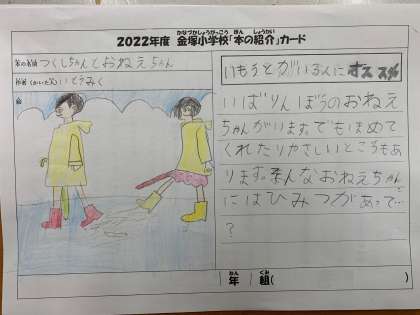 2022年度 金塚小学校「本の紹介」カード
本の名前 つくしちゃんとおねえちゃん
作者(かいた人) いとうみく
絵
いもうとがいる人にオススメ
いばりんぼうのおねえ
ちゃんがいます。でもほめて
くれたりやさしいところもあ
ります。そんなおねえちゃん
にはひみつがあって…
?
年 組( )